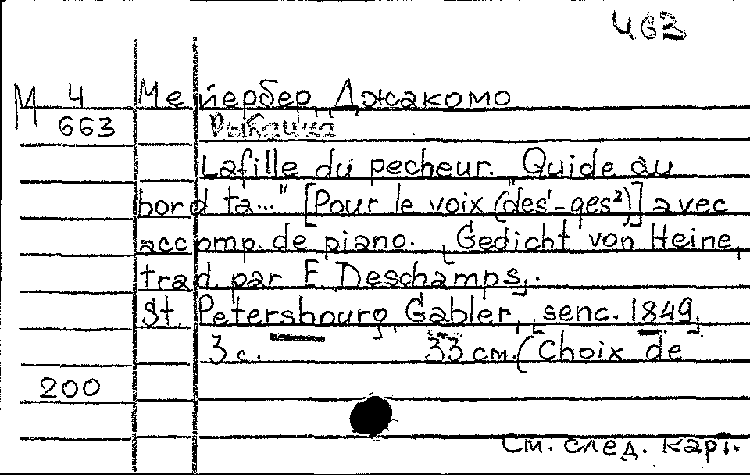 463
М 4 Мейербер Джакомо
663 Рыбачка
Lafille du pecheur. "Quide au
bord ta..." [Pour le voix (des¹-ges²)] avec
accomp. de piano. [Gedicht von Heine,
trad par E Deschamps].
St. Petersbourg, Gabler, [senc. 1849].
3 с. 33 см. (Choix de
200
См. след. карт.